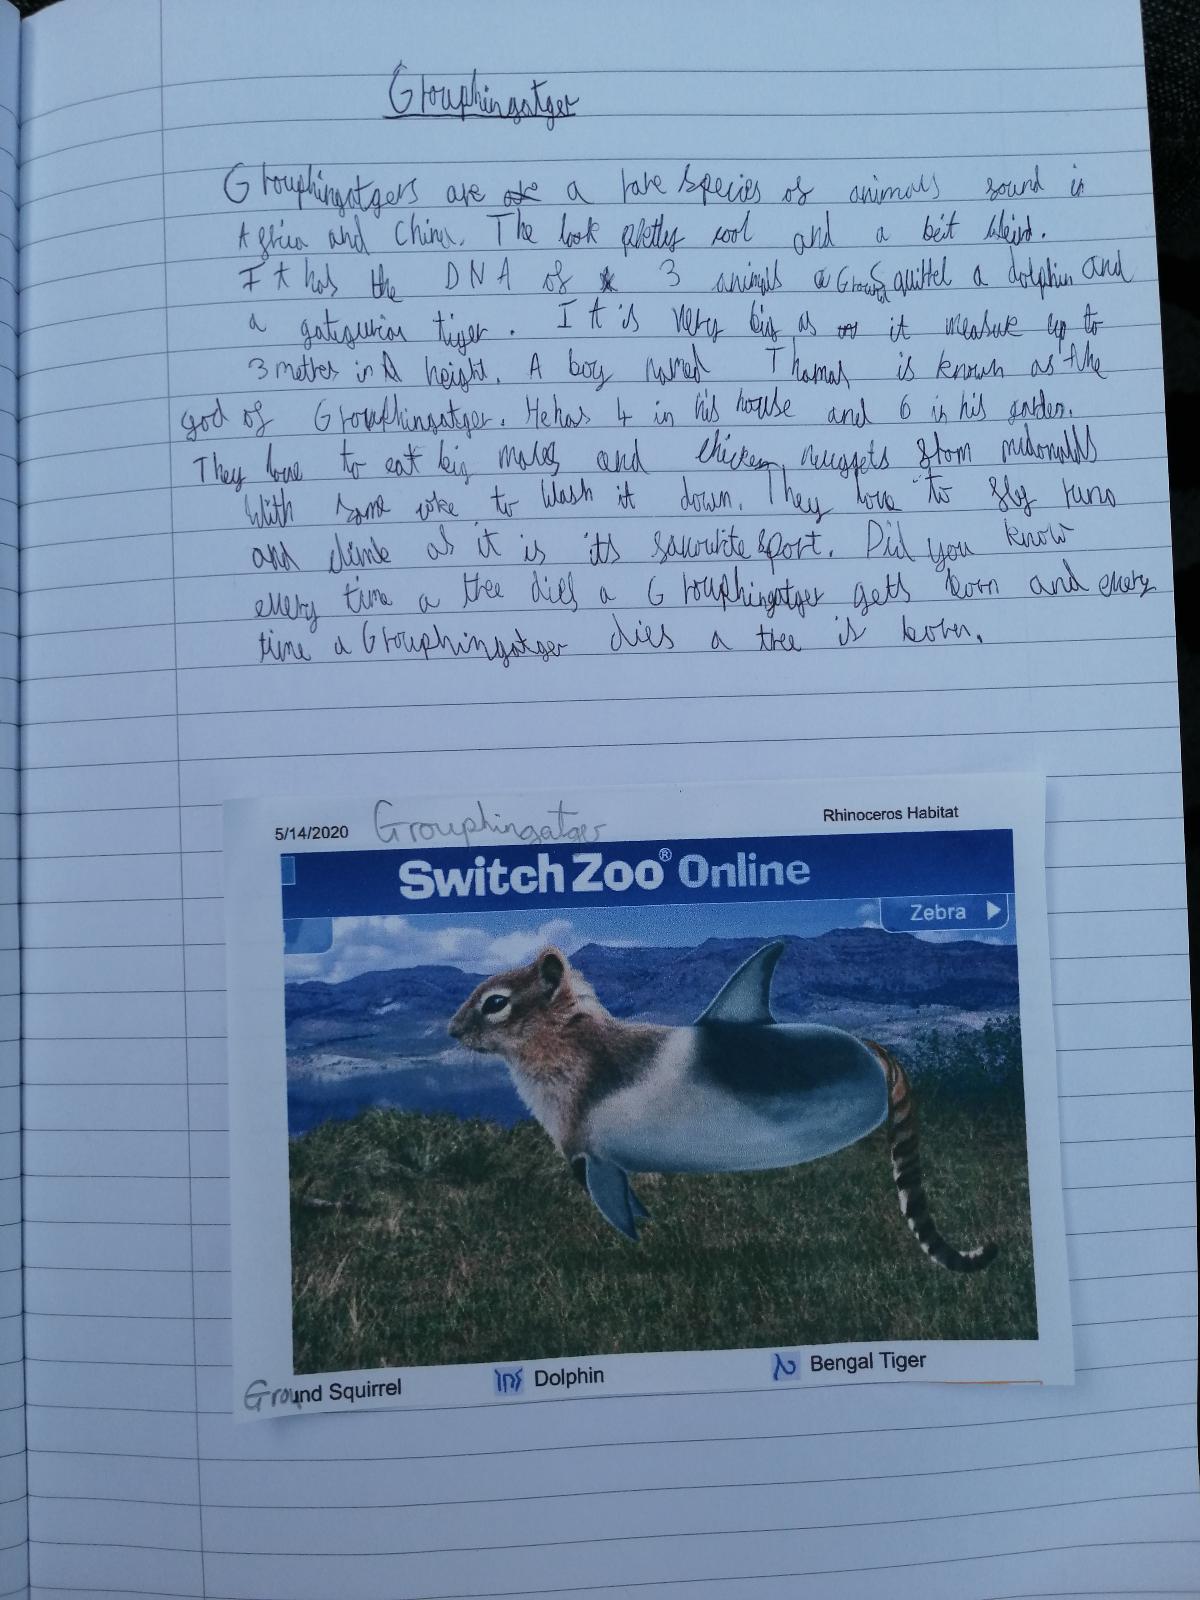 Grouphingatger
Grouphingatgers are a rare species of animals found in
Africa and China. The look pretty cool and a bit Weird.
It has the DNA of 3 animals a Ground Squirrel a dolphin and
a tiger. It is very big as it measure up to
3 metres in height. A boy named Thomas is known as the
god of Grouphingatger. He has 4 in his house and 6 in his garden.
They love to eat big and chicken nuggets from mcdonalds
With some coke to Wash it down. They love to fly runs
and climb as it is its favourite sport. Did you know
every time a tree dies a Grouphingatger gets born and every
time a Grouphingatger dies a tree is born.
5/14/2020 Grouphingatger Rhinoceros Habitat
Switch Zoo® Online
Zebra
Ground Squirrel Dolphin Bengal Tiger